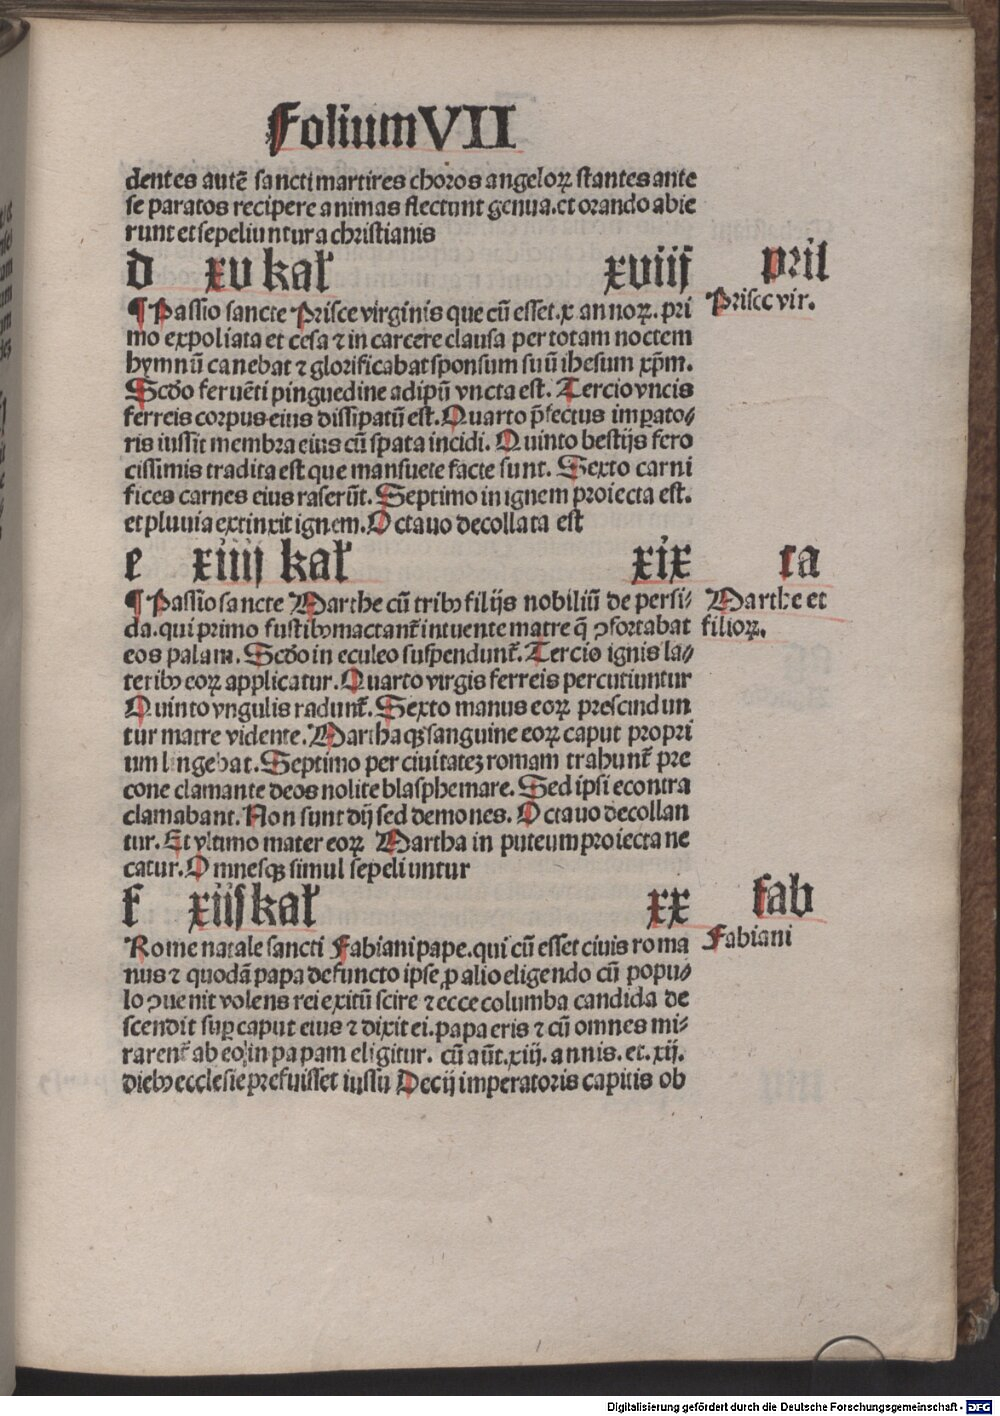 Folium VII
dentes autē sancti martires choros angeloꝝ stantes ante
se paratos recipere animas flectunt genua. et orando abie
runt et sepeliuntur a christianis
d xv kal' xviij pril
¶ Passio sancte Prisce virginis que cū esset .x. annoꝝ. pri
Priscc vir.
mo expoliata et cesa ⁊ in carcere clausa per totam noctem
hymnū canebat ⁊ glorificabat sponsum suū ihesum xp̄m.
Scd̄o feruēti pinguedine adipū vncta est. Tercio vncis
ferreis corpus eius dissipatū est. Quarto p̄fectus imꝑato⸗
ris iussit membra eius cū spata incidi. Quinto bestijs fero
cissimis tradita est que mansuete facte sunt. Sexto carni
fices carnes eius raserūt. Septimo in ignem proiecta est.
et pluuia extinxit ignem. Octauo decollata est
e xiiij kal' xix ra
¶ Passio sancte Marthe cū tribꝫ filijs nobiliū de persi⸗
Marthe et
da. qui primo fustibꝫ mactant̃ intuente matre q̄ ꝯfortabat
filioꝝ.
eos palam. Scd̄o in eculeo suspendunt̃. Tercio ignis la⸗
teribꝫ eoꝝ applicatur. Quarto virgis ferreis percutiuntur
Quinto vngulis radunt̃. Sexto manus eoꝝ prescindun
tur matre vidente. Martha qꝫ sanguine eoꝝ caput propri
um lingebat. Septimo per ciuitateꝫ romam trahunt̃ pre
cone clamante deos nolite blasphemare. Sed ipsi econtra
clamabant. Non sunt dij sed demones. Octauo decollan
tur. Et vltimo mater eoꝝ Martha in puteum proiecta ne
catur. Omnesqꝫ simul sepeliuntur
f xiij kal' xx fab
Rome natale sancti Fabiani pape. qui cū esset ciuis roma
Fabiani
nus ⁊ quodā papa defuncto ipse ꝓ alio eligendo cū popu⸗
lo ꝯuenit volens rei exitū scire ⁊ ecce columba candida de
scendit suꝑ caput eius ⁊ dixit ei. papa eris ⁊ cū omnes mi⸗
rarent̃ ab eo in papam eligitur. cū aūt .xiij. annis. et .xij.
diebꝫ ecclesie prefuisset iussu Decij imperatoris capitis ob
Digitalisierung gefördert durch die Deutsche Forschungsgemeinschaft - DFG